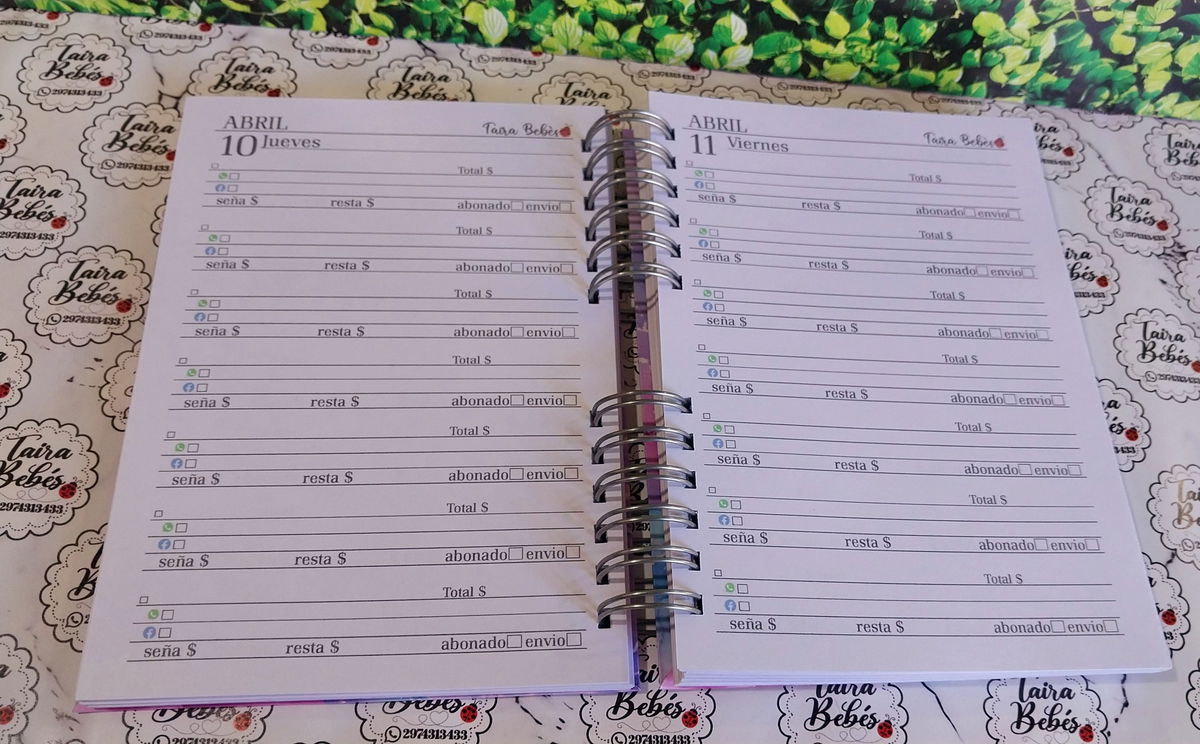 ABRIL
10 Jueves
Taira Bebés
Total $
seña $ resta $ abonado envio
Total $
seña $ resta $ abonado envio
Total $
seña $ resta $ abonado envio
Total $
seña $ resta $ abonado envio
Total $
seña $ resta $ abonado envio
Total $
seña $ resta $ abonado envio
Total $
seña $ resta $ abonado envio
ABRIL
11 Viernes
Taira Bebés
Total $
seña $ resta $ abonado envio
Total $
seña $ resta $ abonado envio
Total $
seña $ resta $ abonado envio
Total $
seña $ resta $ abonado envio
Total $
seña $ resta $ abonado envio
Total $
seña $ resta $ abonado envio
Total $
seña $ resta $ abonado envio
Taira
Bebés
2974313433